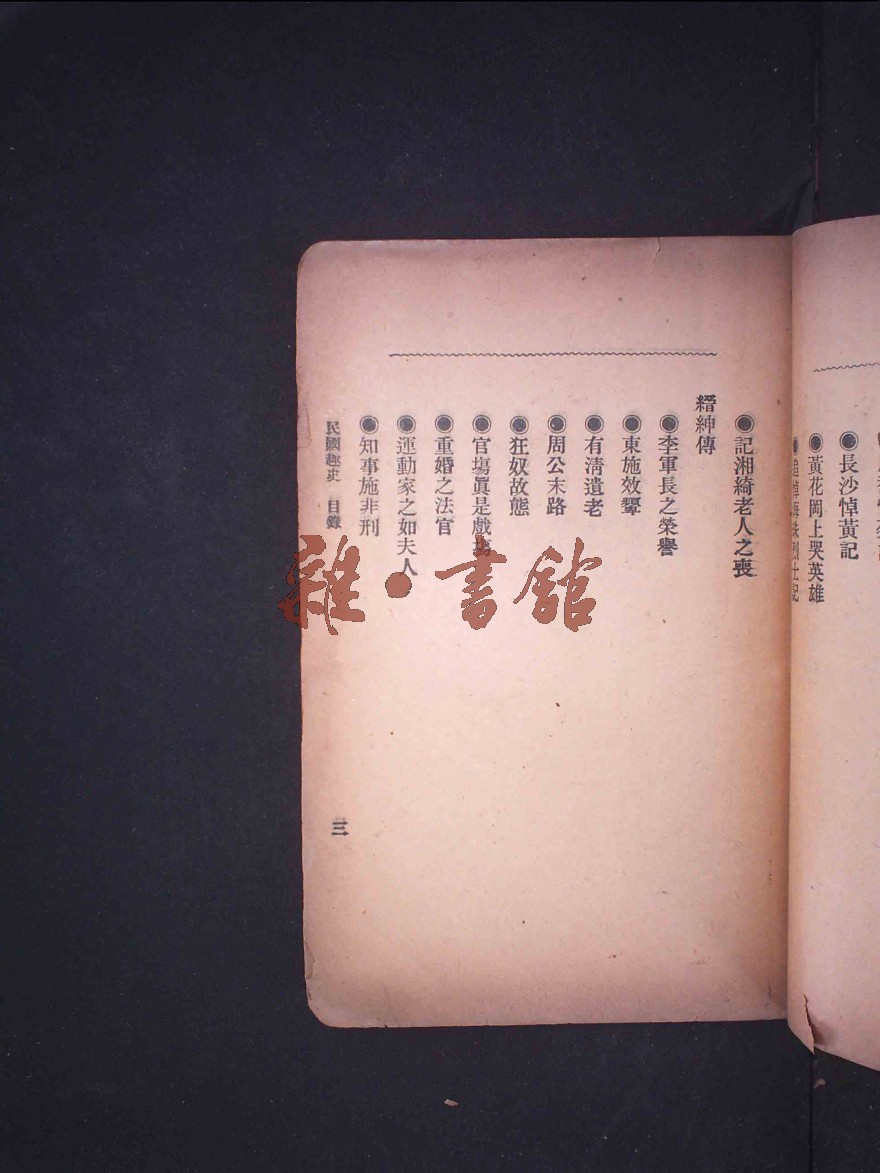 ●長沙悼黃記
●黃花岡上哭英雄
烈士記
●記湘綺老人之喪
縉紳傳
●李軍長之榮譽
●東施效顰
●有淸遺老
●周公末路
●狂奴故態
●官塲眞是戲塲
●重婚之法官
●運動家之如夫人
●知事施非刑
民國趣史 目錄
三
雜·書館